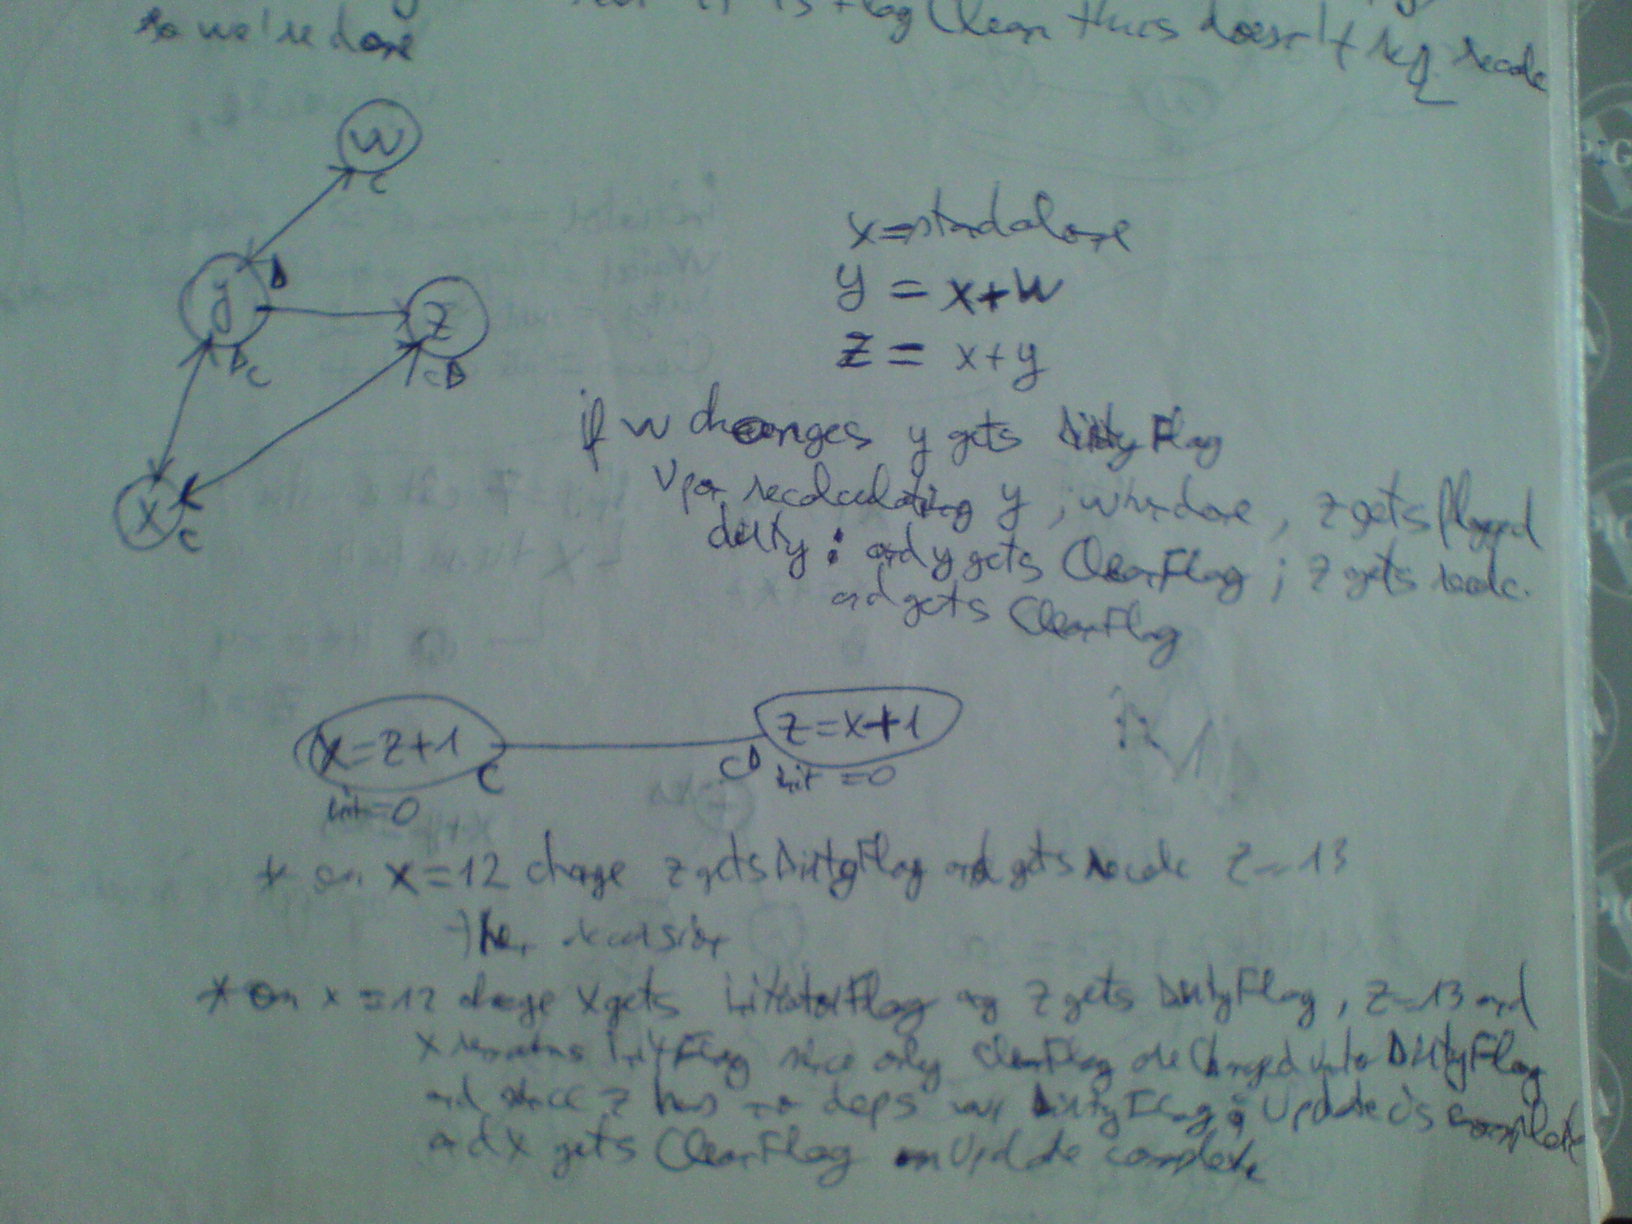 so we're done
is Flag Clean thus doesn't req recalc
w
C
y
D
D C
z
C D
x
C
x = standalone
y = x+w
z = x+y
if w changes y gets DirtyFlag
Upon recalculating y ; when done , z gets flagged
dirty : and y gets CleanFlag ; z gets recalc.
and gets CleanFlag
x=z+1
C
init=0
CD
z=x+1
init =0
* on x=12 change z gets DirtyFlag and gets recalc z=13
then recursion
* on x=12 change x gets InitiatorFlag z gets DirtyFlag , z=13 and
x remains InitFlag since only CleanFlag are changed into DirtyFlag
and since z has no deps DirtyFlag ; Update is complete
and x gets CleanFlag on Update complete